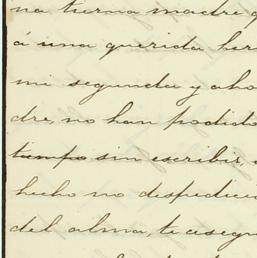 na tierna madre q
á una querida her
mi segunda y aho
dre, no han podido
tiempo sin escribir,
hecho no despedici
del alma, te asegu